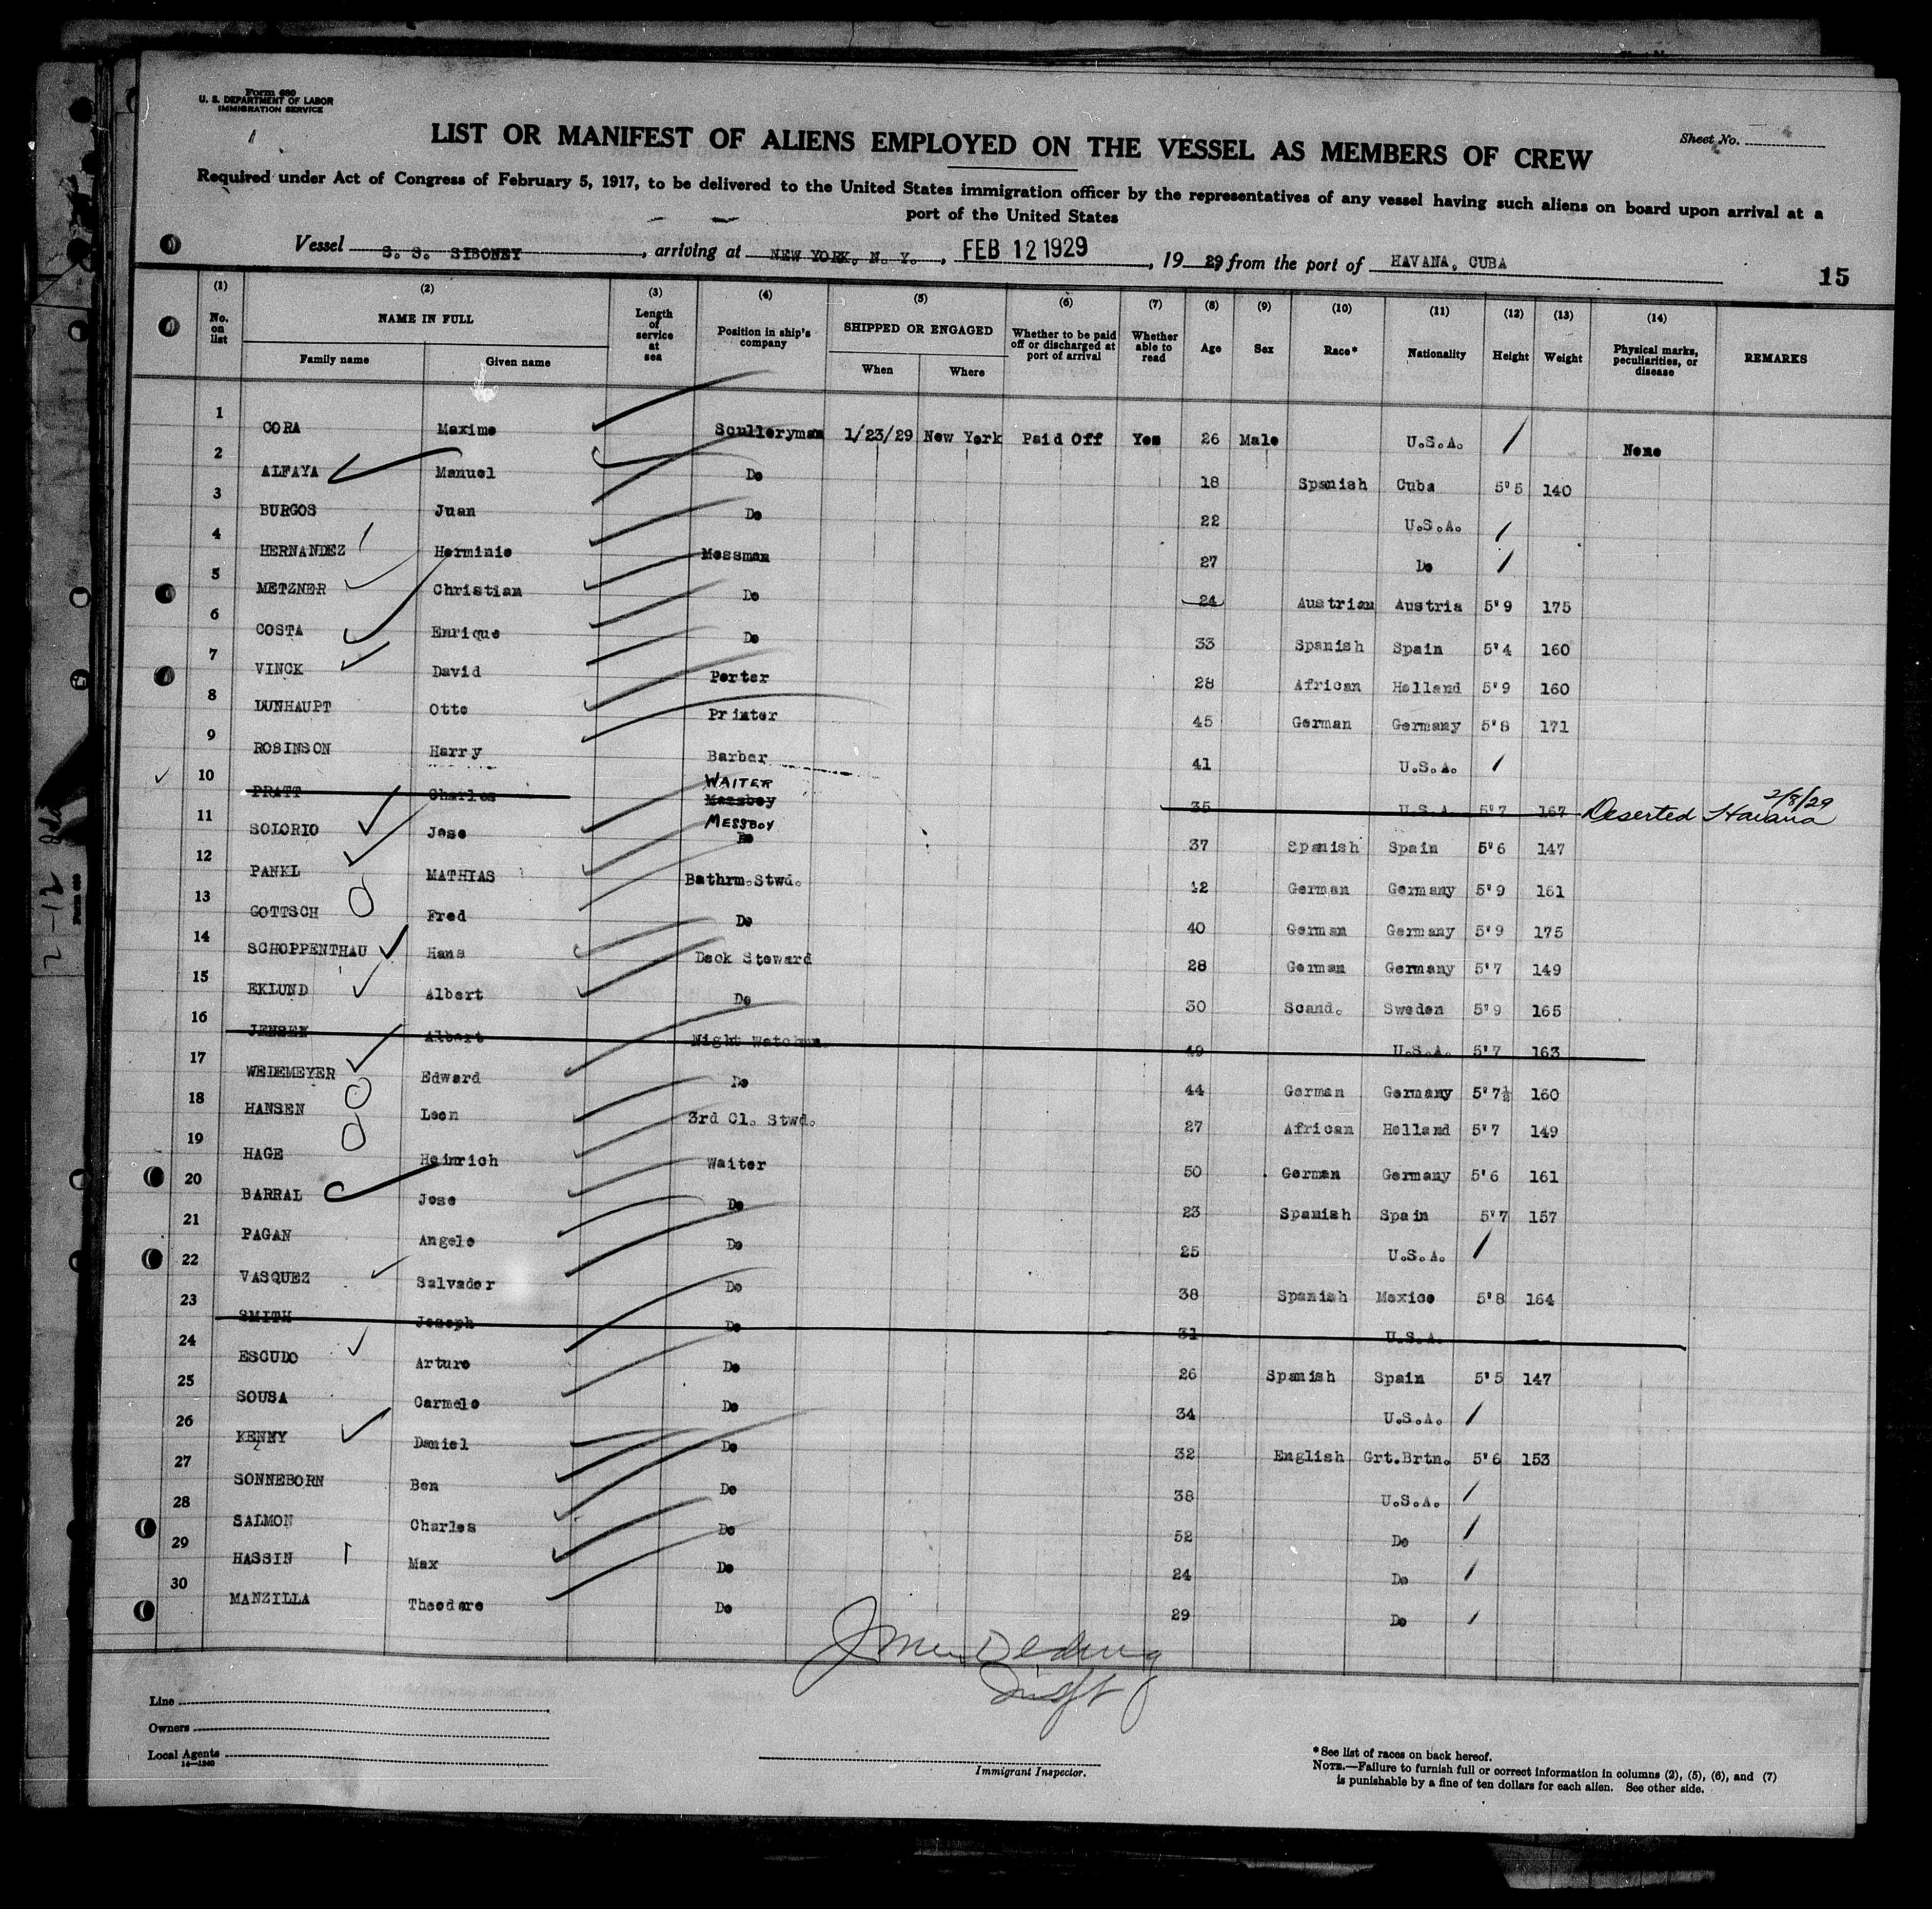 Form 689
U. S. DEPARTMENT OF LABOR
IMMIGRATION SERVICE
LIST OR MANIFEST OF ALIENS EMPLOYED ON THE VESSEL AS MEMBERS OF CREW
Sheet No.
Required under Act of Congress of February 5, 1917, to be delivered to the United States immigration officer by the representatives of any vessel having such aliens on board upon arrival at a
port of the United States
Vessel S. S. SIBONEY, arriving at NEW YORK, N. Y., FEB 12 1929, 19 29, from the port of HAVANA, CUBA
15
(1) (2) (3) (4) (5) (6) (7) (8) (9) (10) (11) (12) (13) (14)
No. on list NAME IN FULL Length of service at sea Position in ship's company SHIPPED OR ENGAGED Whether to be paid off or discharged at port of arrival Whether able to read Age Sex Race* Nationality Height Weight Physical marks, peculiarities, or disease REMARKS
Family name Given name When Where
1 CORA Maximo Sculleryman 1/23/29 New York Paid Off Yes 26 Male U.S.A. None
2 ALFAYA Manuel Do 18 Spanish Cuba 5'5 140
3 BURGOS Juan Do 22 U.S.A.
4 HERNANDEZ Herminio Messman 27 Do
5 METZNER Christian Do 24 Austrian Austria 5'9 175
6 COSTA Enrique Do 33 Spanish Spain 5'4 160
7 VINCK David Porter 28 African Holland 5'9 160
8 DUNHAUPT Otto Printer 45 German Germany 5'8 171
9 ROBINSON Harry Barber 41 U.S.A.
10 PRATT Charles WAITER Messboy 35 U.S.A. 5'7 167 Deserted Havana 2/8/29
11 SOLORIO Jose MESSBOY Do 37 Spanish Spain 5'6 147
12 PANKL MATHIAS Bathrm.Stwd. 42 German Germany 5'9 161
13 GOTTSCH Fred Do 40 German Germany 5'9 175
14 SCHOPPENTHAU Hans Deck Steward 28 German Germany 5'7 149
15 EKLUND Albert Do 30 Scand. Sweden 5'9 165
16 JENSEN Albert Night Watchmn. 49 U.S.A. 5'7 163
17 WEDEMEYER Edward Do 44 German Germany 5'7½ 160
18 HANSEN Leon 3rd Cl. Stwd. 27 African Holland 5'7 149
19 HAGE Heinrich Waiter 50 German Germany 5'6 161
20 BARRAL Jose Do 23 Spanish Spain 5'7 157
21 PAGAN Angelo Do 25 U.S.A.
22 VASQUEZ Salvador Do 38 Spanish Mexico 5'8 164
23 SMITH Joseph Do 31 U.S.A.
24 ESCUDO Arturo Do 26 Spanish Spain 5'5 147
25 SOUSA Carmelo Do 34 U.S.A.
26 KENNY Daniel Do 32 English Grt.Brtn. 5'6 153
27 SONNEBORN Ben Do 38 U.S.A.
28 SALMON Charles Do 52 Do
29 HASSIN Max Do 24 Do
30 MANZILLA Theodore Do 29 Do
Line
Owners
Local Agents
14—1240
Immigrant Inspector.
*See list of races on back hereof.
NOTE.—Failure to furnish full or correct information in columns (2), (5), (6), and (7)
is punishable by a fine of ten dollars for each alien. See other side.